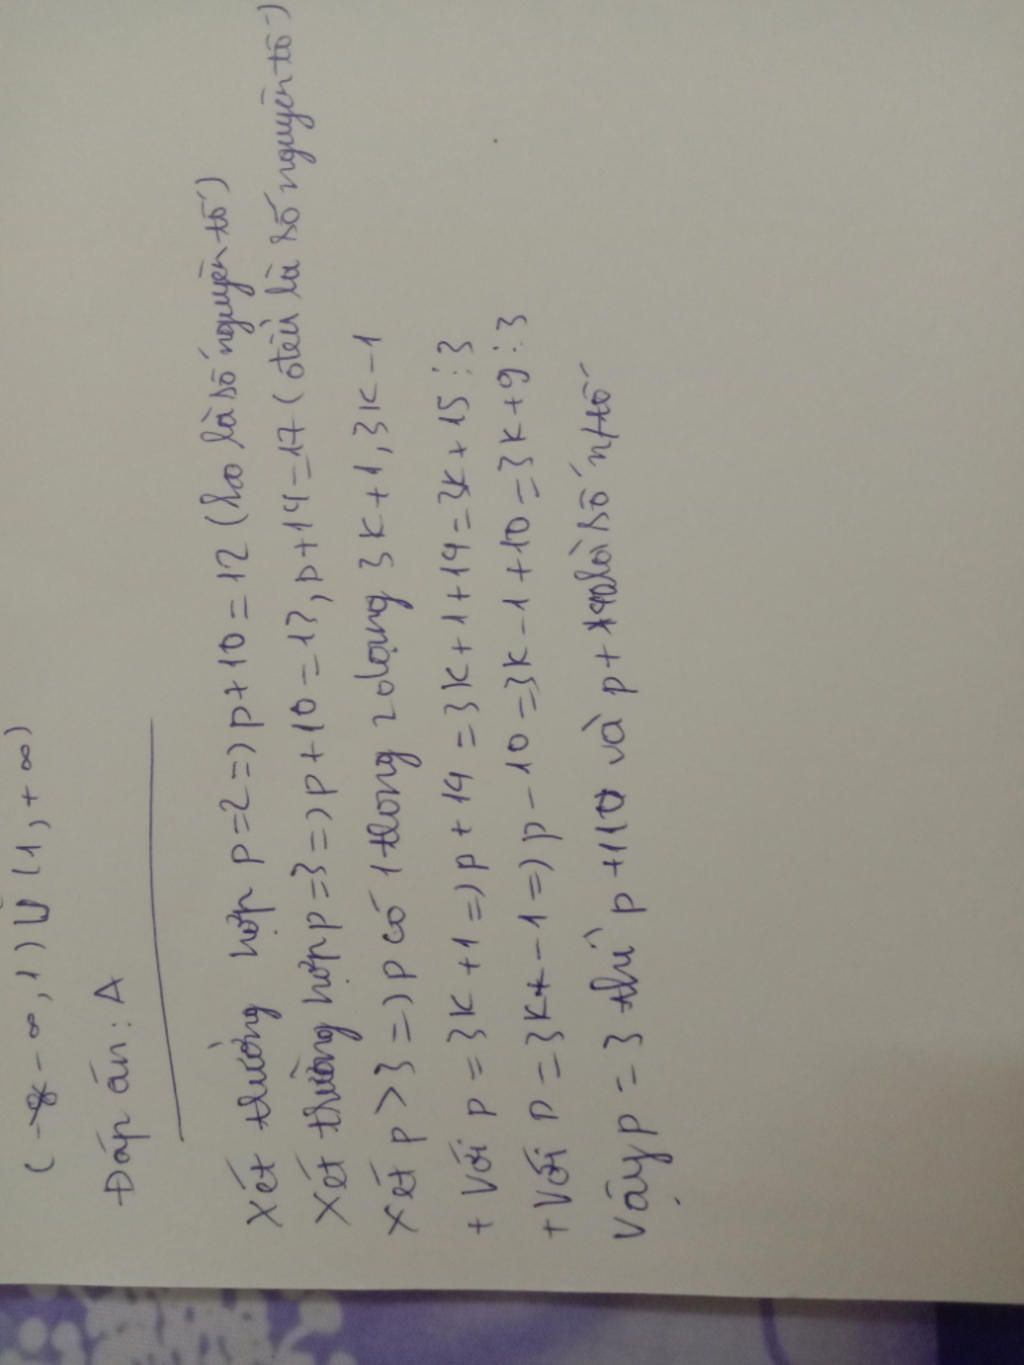 (-∞, 1) U (1, +∞)
Đáp án: A
Xét trường hợp p=2 => p+10=12 (ko là số nguyên tố)
Xét trường hợp p=3 => p+10=13, p+14=17 (đều là số nguyên tố)
Xét p>3 => p có 1 trong 2 dạng 3K+1, 3K-1
+ Với p=3K+1 => p+14=3K+1+14=3K+15⋮3
+ Với p=3K-1 => p-10=3K-1+10=3K+9⋮3
Vậy p=3 thì p+10 và p+ là số n/tố